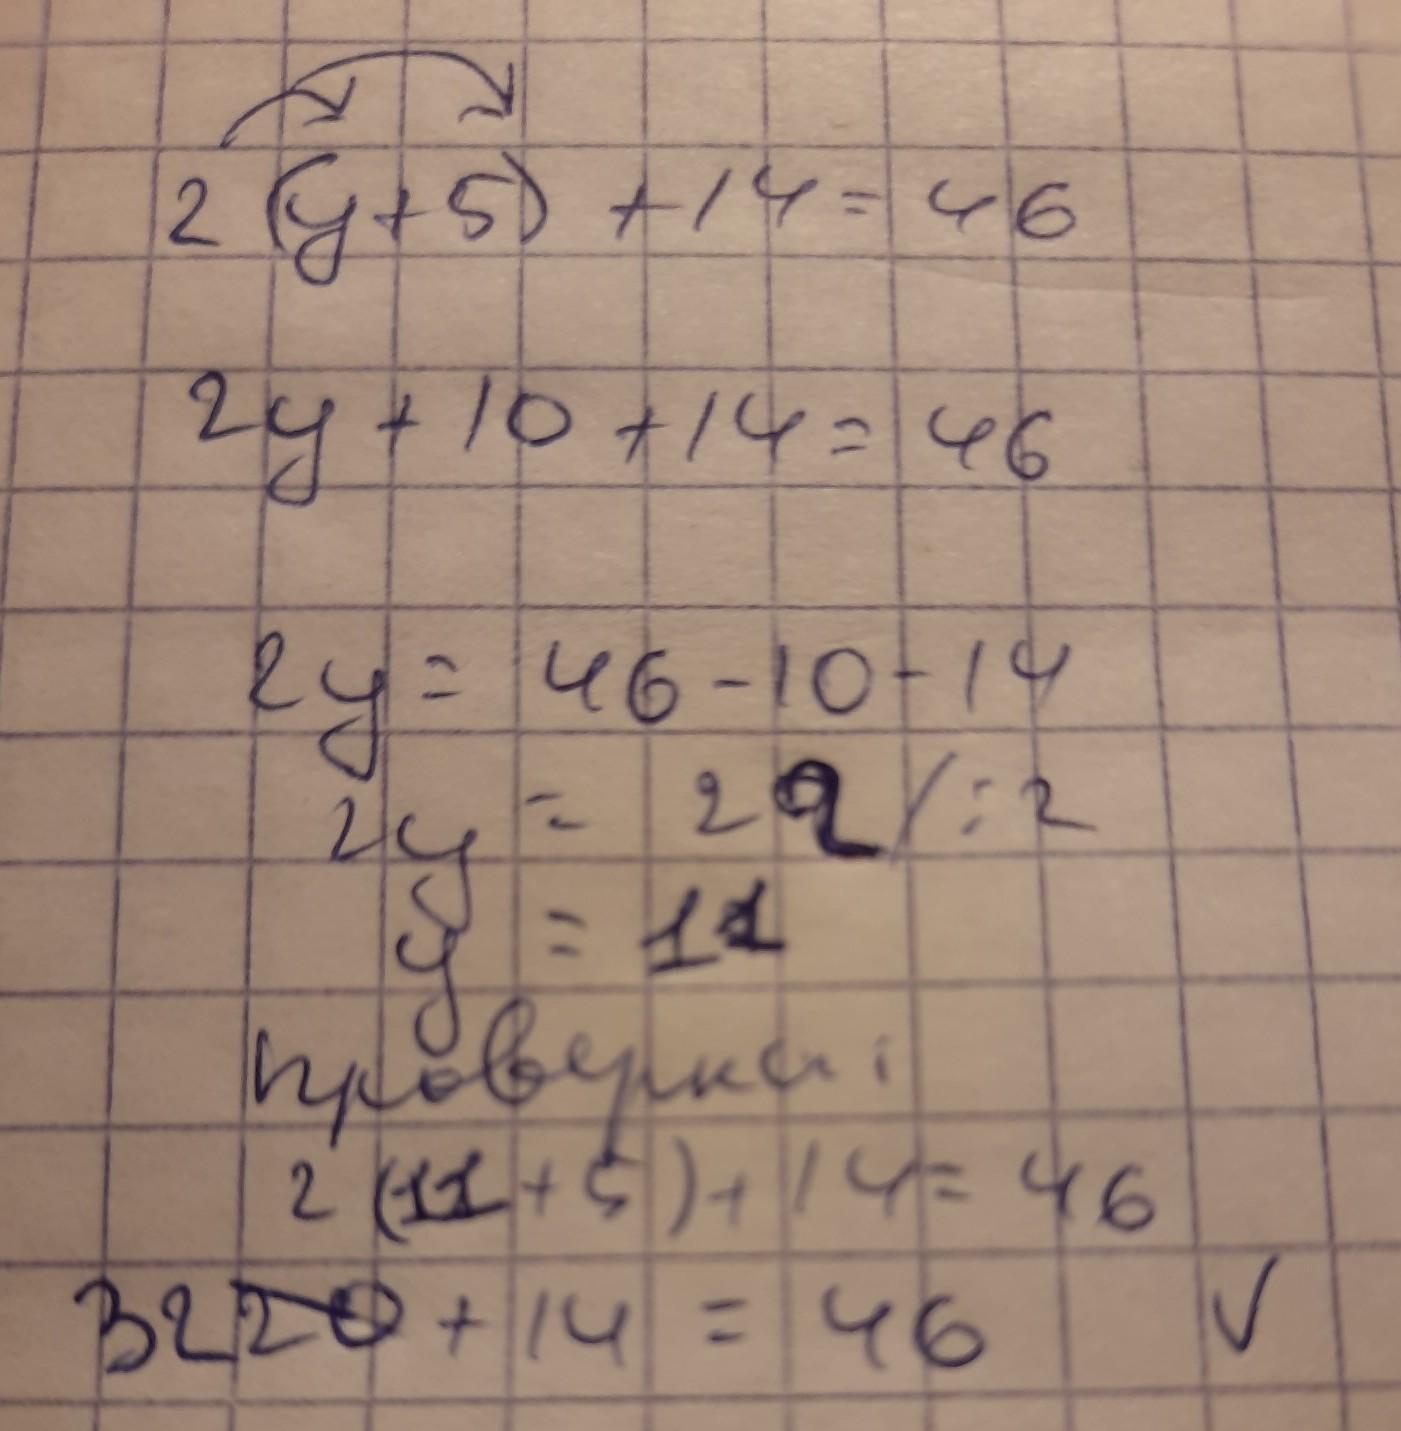 2(y+5) +14=46
2y+10+14=46
2y= 46-10-14
2y = 22/:2
y = 11
проверка:
2(11+5)+14=46
32 20 +14 = 46 √